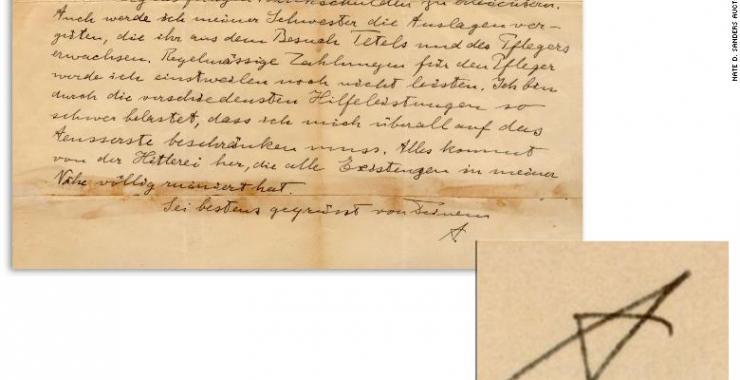 zu erleichtern.
Auch werde ich meiner Schwester die Auslagen ver-
güten, die ihr aus dem Besuch Tetels und des Pflegers
erwachsen. Regelmässige Zahlungen für den Pfleger
werde ich einstweilen noch nicht leisten. Ich bin
durch die verschiedensten Hilfeleistungen so
schwer belastet, dass ich mich überall auf das
Aeusserste beschränken muss. Alles kommt
von der Hitlerei her, die alle Existenzen in meiner
Nähe völlig ruiniert hat.
Sei bestens gegrüsst von Deinem
A
A
NATE D. SANDERS AUCT